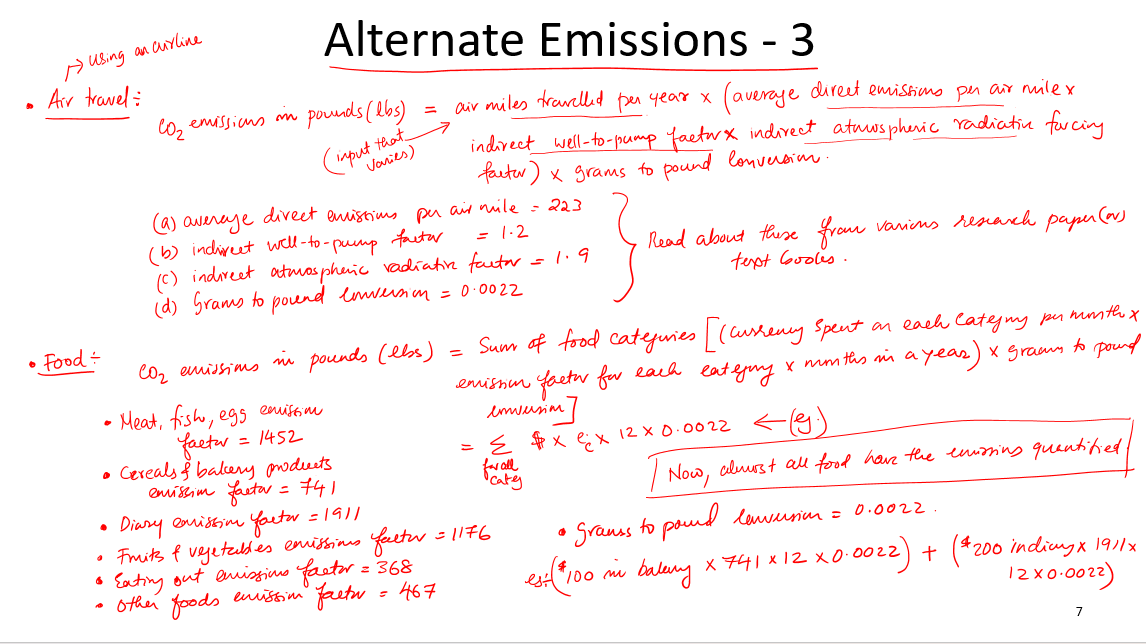 Alternate Emissions - 3
↱ using an airline
• Air travel:
CO2 emissions in pounds (lbs) = air miles travelled per year × (average direct emissions per air mile ×
(input that varies)
indirect well-to-pump factor × indirect atmospheric radiative forcing
factor) × grams to pound conversion.
(a) average direct emissions per air mile = 223
(b) indirect well-to-pump factor = 1.2
(c) indirect atmospheric radiative factor = 1.9
(d) Grams to pound conversion = 0.0022
Read about these from various research paper (or)
text books.
• Food:
CO2 emissions in pounds (lbs) = Sum of food categories [(currency spent on each category per month ×
emission factor for each category × months in a year) × grams to pound
conversion]
= ∑ $ × e_c × 12 × 0.0022 ← (eg.)
for all
categ
Now, almost all food have the emissions quantified
• Meat, fish, egg emission
factor = 1452
• Cereals & bakery products
emission factor = 741
• Diary emission factor = 1911
• Fruits & vegetables emissions factor = 1176
• Eating out emissions factor = 368
• Other foods emission factor = 467
• grams to pound conversion = 0.0022.
eg:- ($100 in bakery × 741 × 12 × 0.0022) + ($200 in diary × 1911 ×
12 × 0.0022)
7